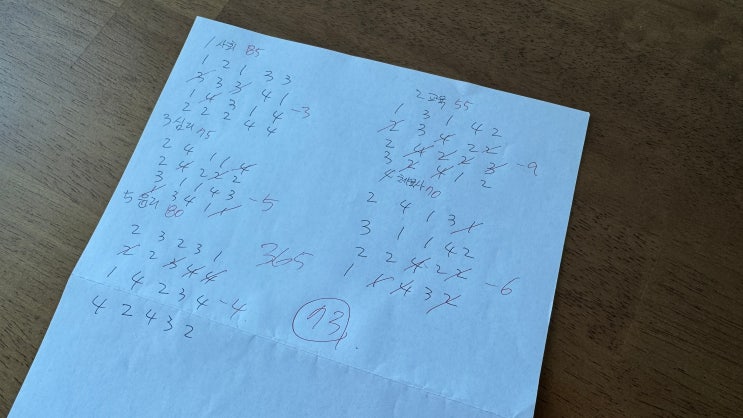 1 사회 85
1 2 1 3 3
3 3 3 4 1
1 4 3 1 4 -3
2 2 2 4 4
3 심리 75
2 4 1 1 4
2 4 2 2 2
3 1 1 4 3
1 3 4 1 1 -5
5 윤리 80
2 3 2 3 1
2 2 3 4 4
1 4 2 3 4 -4
4 2 4 3 2
2 교육 55
1 3 1 4 2
2 3 4 2 2
2 4 2 2 3 -9
3 2 4 1 2
4 70
2 4 1 3 1
3 1 1 4 2
2 2 4 2 2 -6
1 1 4 3 2
365
73